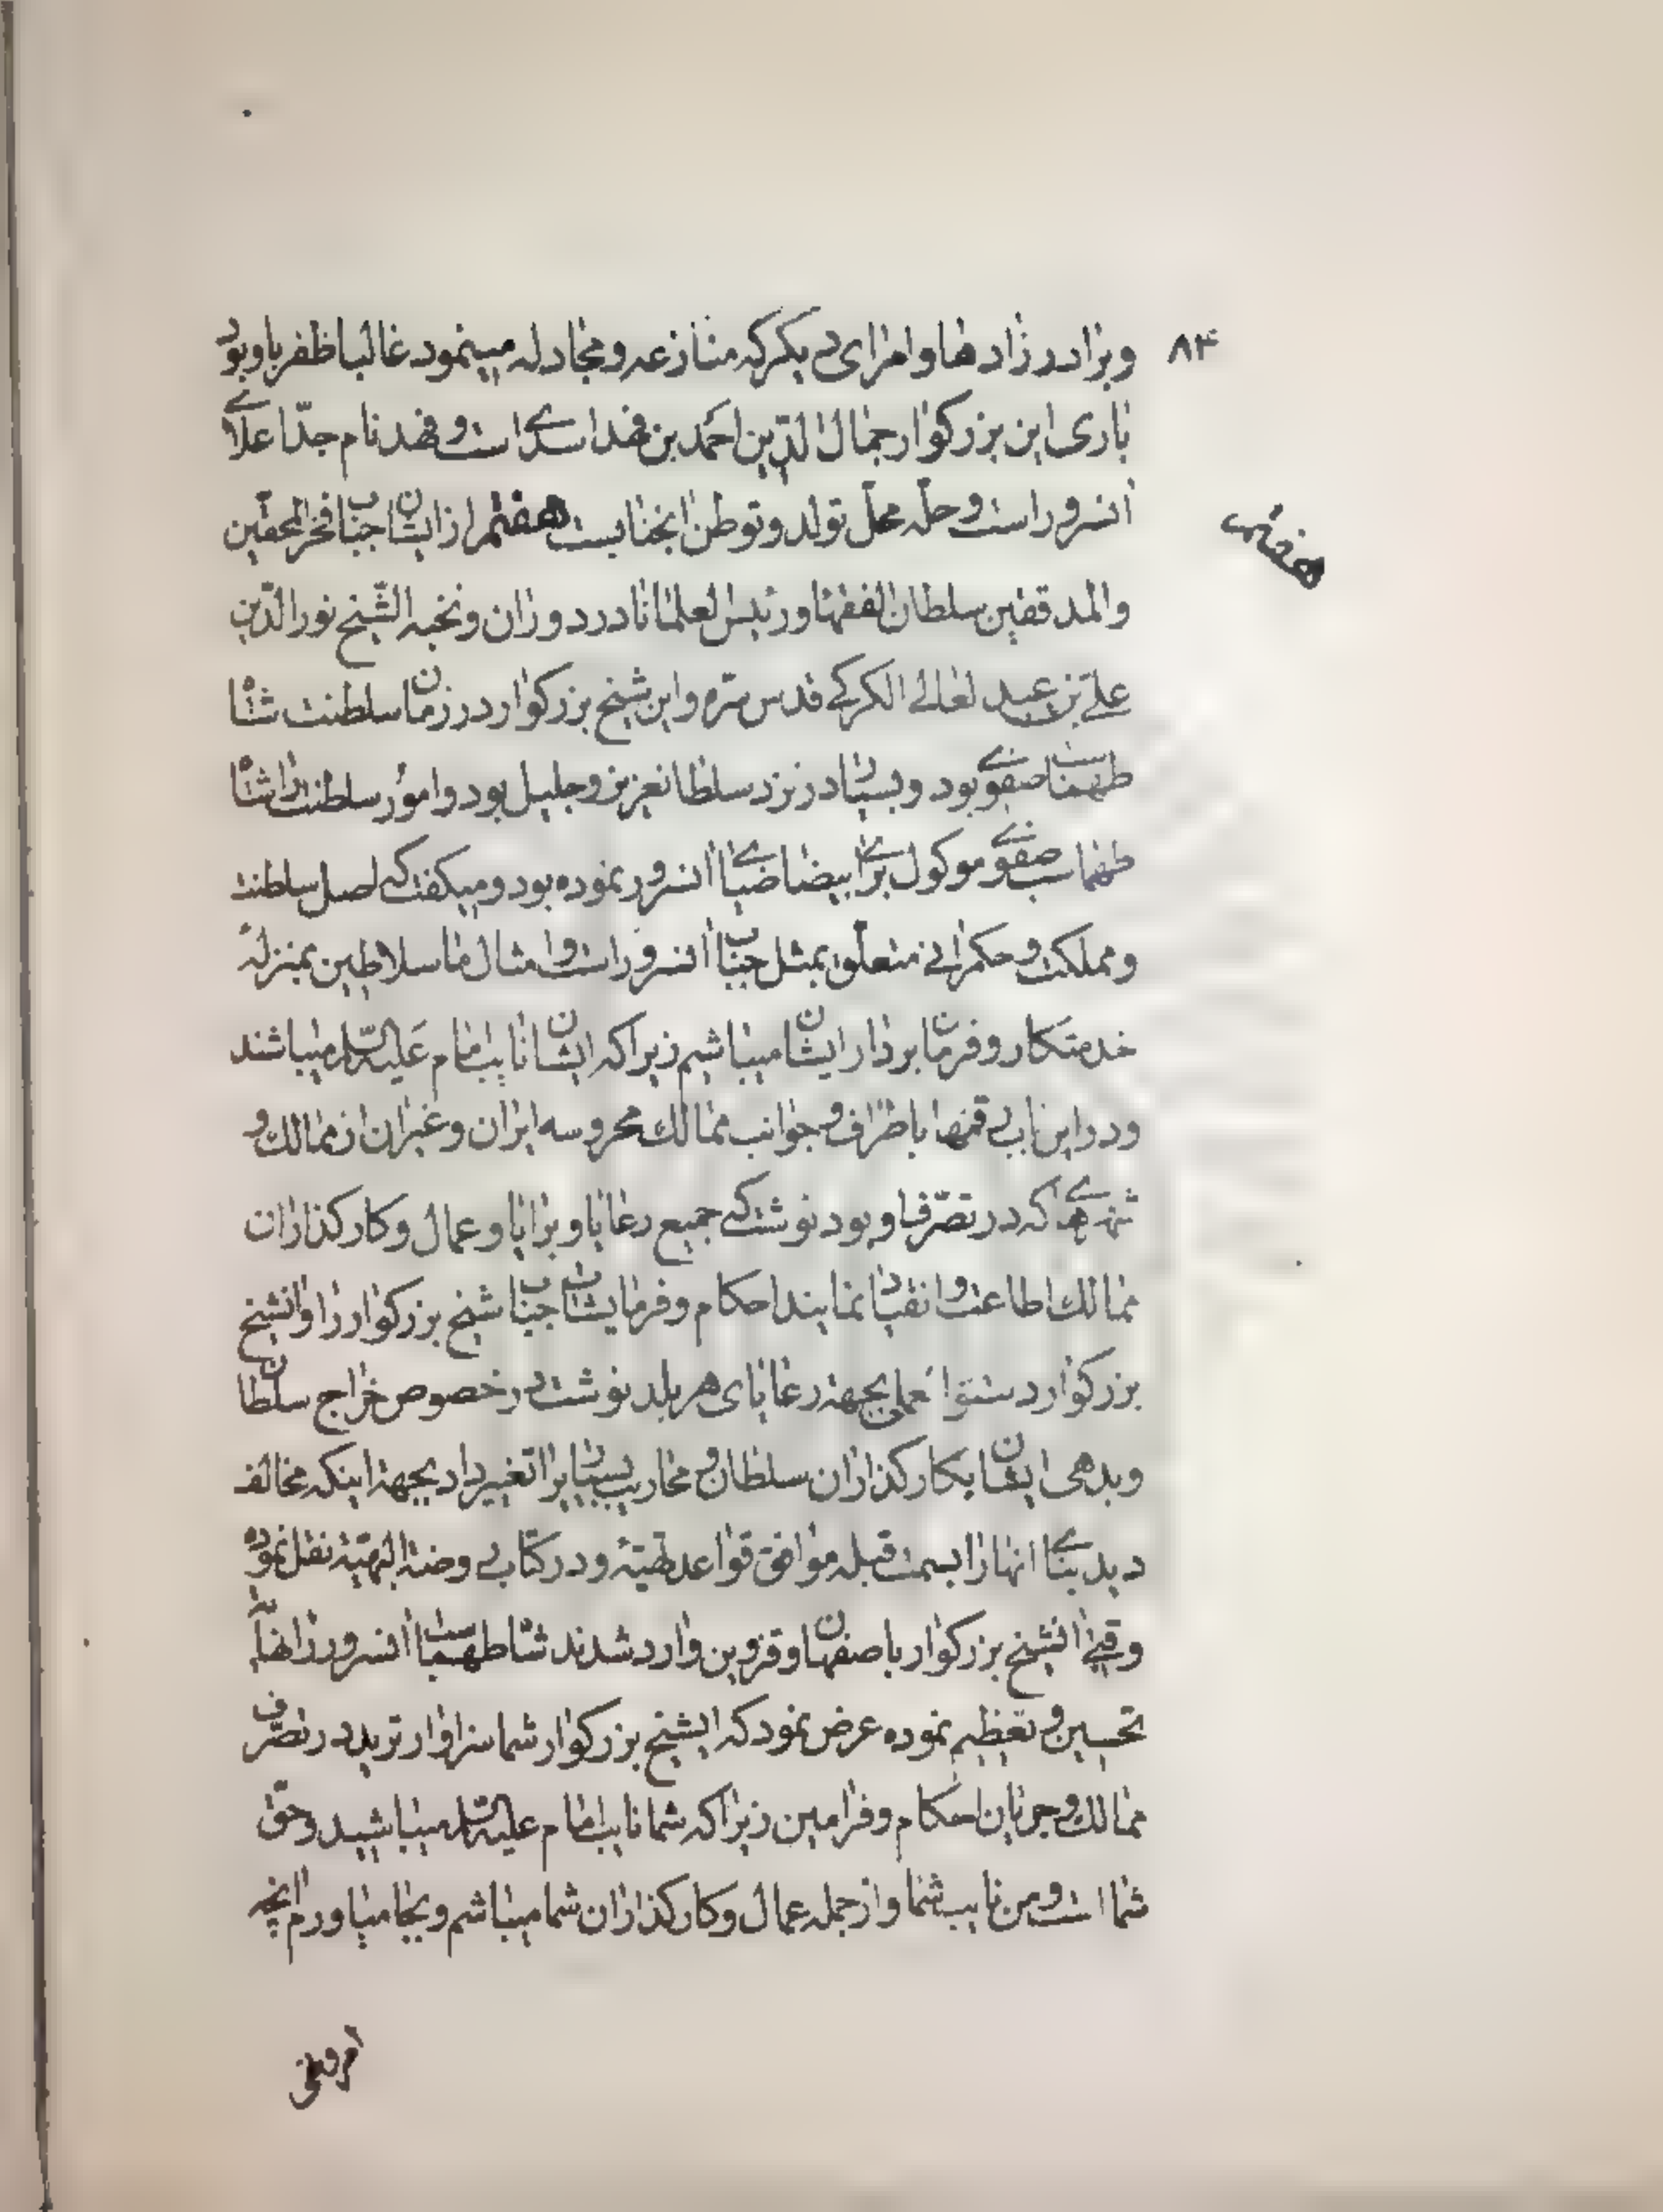 ۸۴
وبرادرزادها و امرای دیکر که منازعه و مجادله مینمود غالبا ظفر با او بود
باری این بزرکوار جمال الدّین احمد بن فهد اسدے است و فهد نام جدّ اعلاے
آنسرور است و حلّه محلّ تولد و توطن انجنابست هفتم از ایشان جناب فخر المحققین
هفتم
والمدققین سلطان الفقها و رئیس العلما نادر دوران و نخبه الشّیخ نور الدّین
علے بن عبد لعالے الکرکے قدس سرّه و این شیخ بزرکوار در زمان سلطنت شاه
طهماسب صفوے بود و بسیار در نزد سلطان عزیز و جلیل بود و امور سلطنت را شاه
طهماسب صفوے موکول براے بیضا ضیاے آنسرور نموده بود و میکفت که اصل سلطنت
و مملکت و حکمرانے متعلّق بمثل جناب آنسرور است و امثال ما سلاطین بمنزلهٔ
خدمتکار و فرمان بردار ایشان میباشیم زیرا که ایشان نایب امام علیه السّلام میباشند
و در این باب رقمها باطراف و جوانب ممالک محروسه ایران و غیران از ممالک و
شهرے ها که در تصرّف او بود نوشت که جمیع رعایا و برایا و عمال و کارکذاران
ممالک اطاعت و انقیاد نمایند احکام و فرمایشات جناب شیخ بزرکوار را و انشیخ
بزرکوار دستور العمل بجهة رعایای هر بلد نوشت در خصوص خراج سلطان
و بدهی ایشان بکارکذاران سلطان و محاریب بسیار را تغییر داد بجهة اینکه مخالف
دید بناے انها را بسمت قبله موافق قواعد هیئة و در کتاب روضة البهیّة نقل نموده
وقتے انشیخ بزرکوار باصفهان و قزوین وارد شدند شاه طهماسب آنسرور را نهایة
تحسین و تعظیم نموده عرض نمود که ایشیخ بزرکوار شما سزاوار ترید در تصرّف
ممالک و جریان احکام و فرامین زیرا که شما نایب امام علیه السّلام میباشید و حقّ
شما است و من نایب شما و از جمله عمال و کارکذاران شما میباشم و بجا میاورم انچه